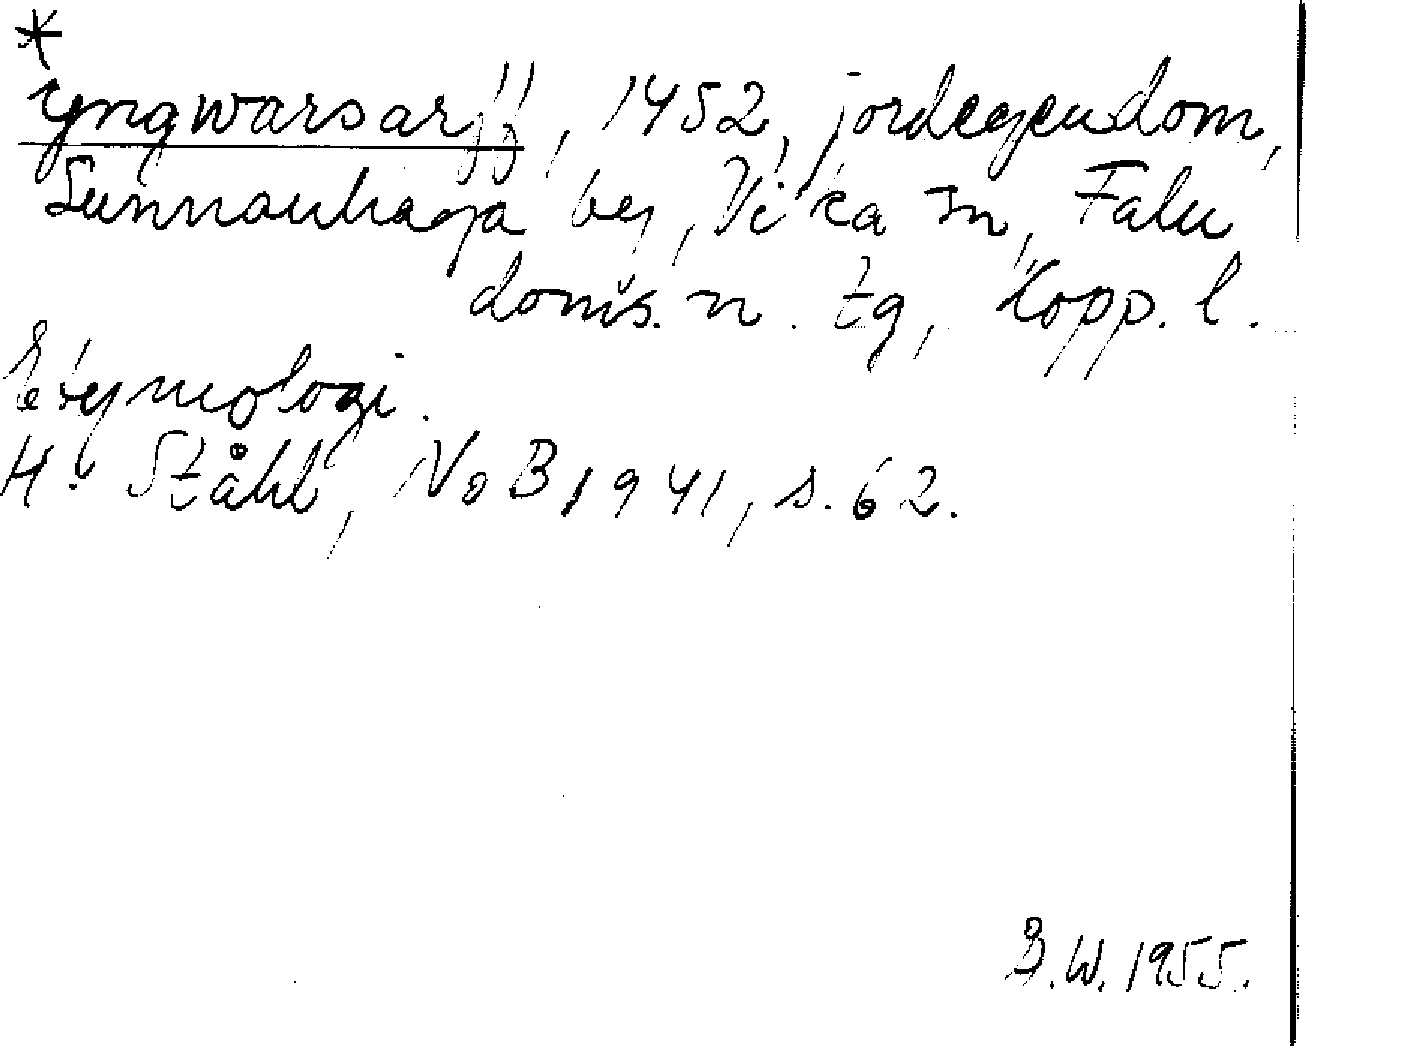 *
yngwarsarff, 1452, jordegendom,
Sunnanhaga by, Vika sn, Falu
doms. n. tg, Kopp. l.
Etymologi.
H. Ståhl, NoB 1941, s. 62.
B.W. 1955.